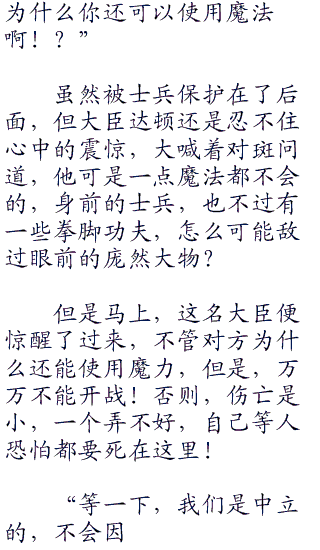 为什么你还可以使用魔法
啊！？”
虽然被士兵保护在了后
面，但大臣达顿还是忍不住
心中的震惊，大喊着对斑问
道，他可是一点魔法都不会
的，身前的士兵，也不过有
一些拳脚功夫，怎么可能敌
过眼前的庞然大物？
但是马上，这名大臣便
惊醒了过来，不管对方为什
么还能使用魔力，但是，万
万不能开战！否则，伤亡是
小，一个弄不好，自己等人
恐怕都要死在这里！
“等一下，我们是中立
的，不会因